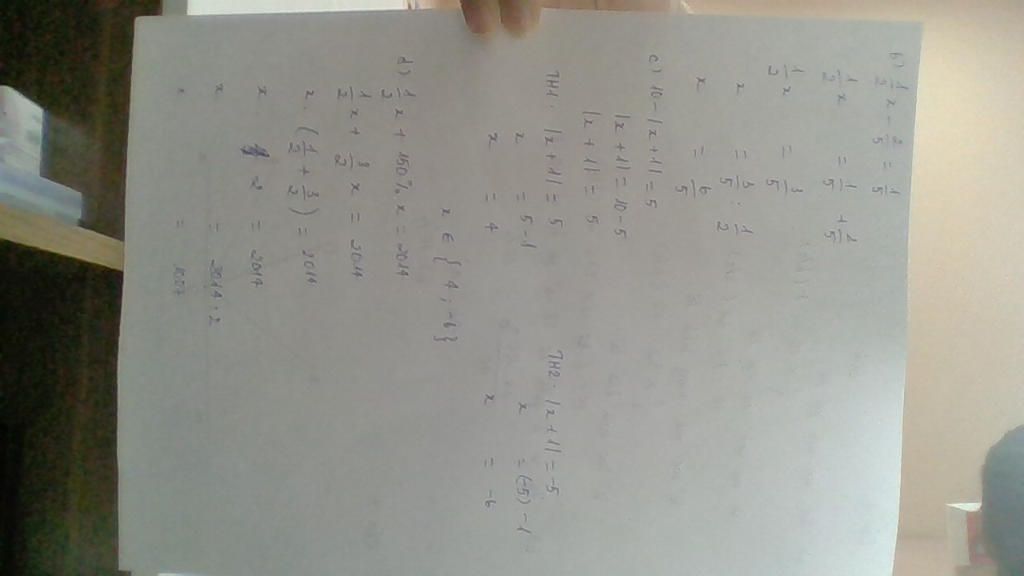 b) 1/2 x - 2/5 = 1/5
1/2 x = 1/5 + 2/5
1/2 x = 3/5
x = 3/5 : 1/2
x = 6/5
c) 10 - |x + 1| = 5
|x + 1| = 10 - 5
|x + 1| = 5
TH1 · |x + 1| = 5 TH2 · |x + 1| = -5
x = 5 - 1 x = (-5) - 1
x = 4 x = -6
x ∈ {4 ; -6}
d) 1/2 x + 150% x = 2014
1/2 x + 3/2 x = 2014
x . (1/2 + 3/2) = 2014
x . 2 = 2014
x = 2014 : 2
x = 1007